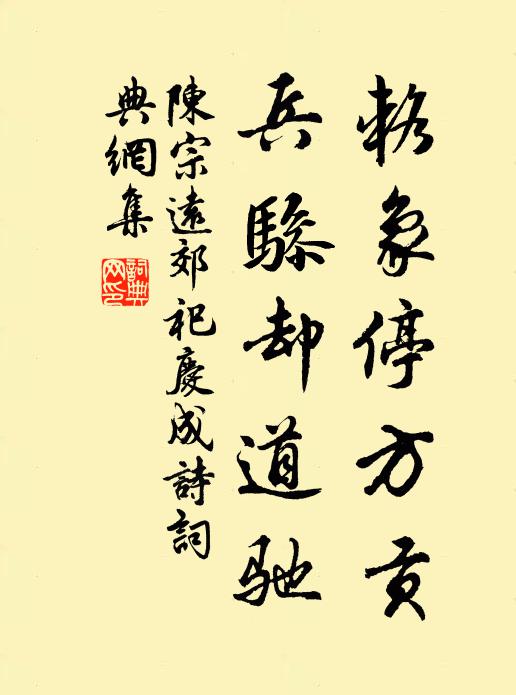 輅象停方贡
兵驂却道馳
陳宗遠郊祀慶成詩詞
典網集
詞典
网印